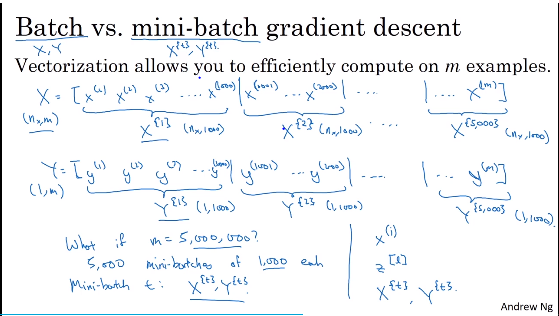 Batch vs. mini-batch gradient descent
X, Y X^{t}, Y^{t}
Vectorization allows you to efficiently compute on m examples.
X = [x^(1) x^(2) x^(3) ... x^(1000) | x^(1001) ... x^(2000) | ... | ... x^(m)]
(n_x, m) X^{1} (n_x, 1000) X^{2} (n_x, 1000) ... X^{5,000} (n_x, 1000)
Y = [y^(1) y^(2) y^(3) ... y^(1000) | y^(1001) ... y^(2000) | ... | ... y^(m)]
(1, m) Y^{1} (1, 1000) Y^{2} (1, 1000) Y^{5,000} (1, 1000)
What if m = 5,000,000?
5,000 mini-batches of 1,000 each
Mini-batch t: X^{t}, Y^{t}
x^(i)
z^[l]
X^{t}, Y^{t}.
Andrew Ng